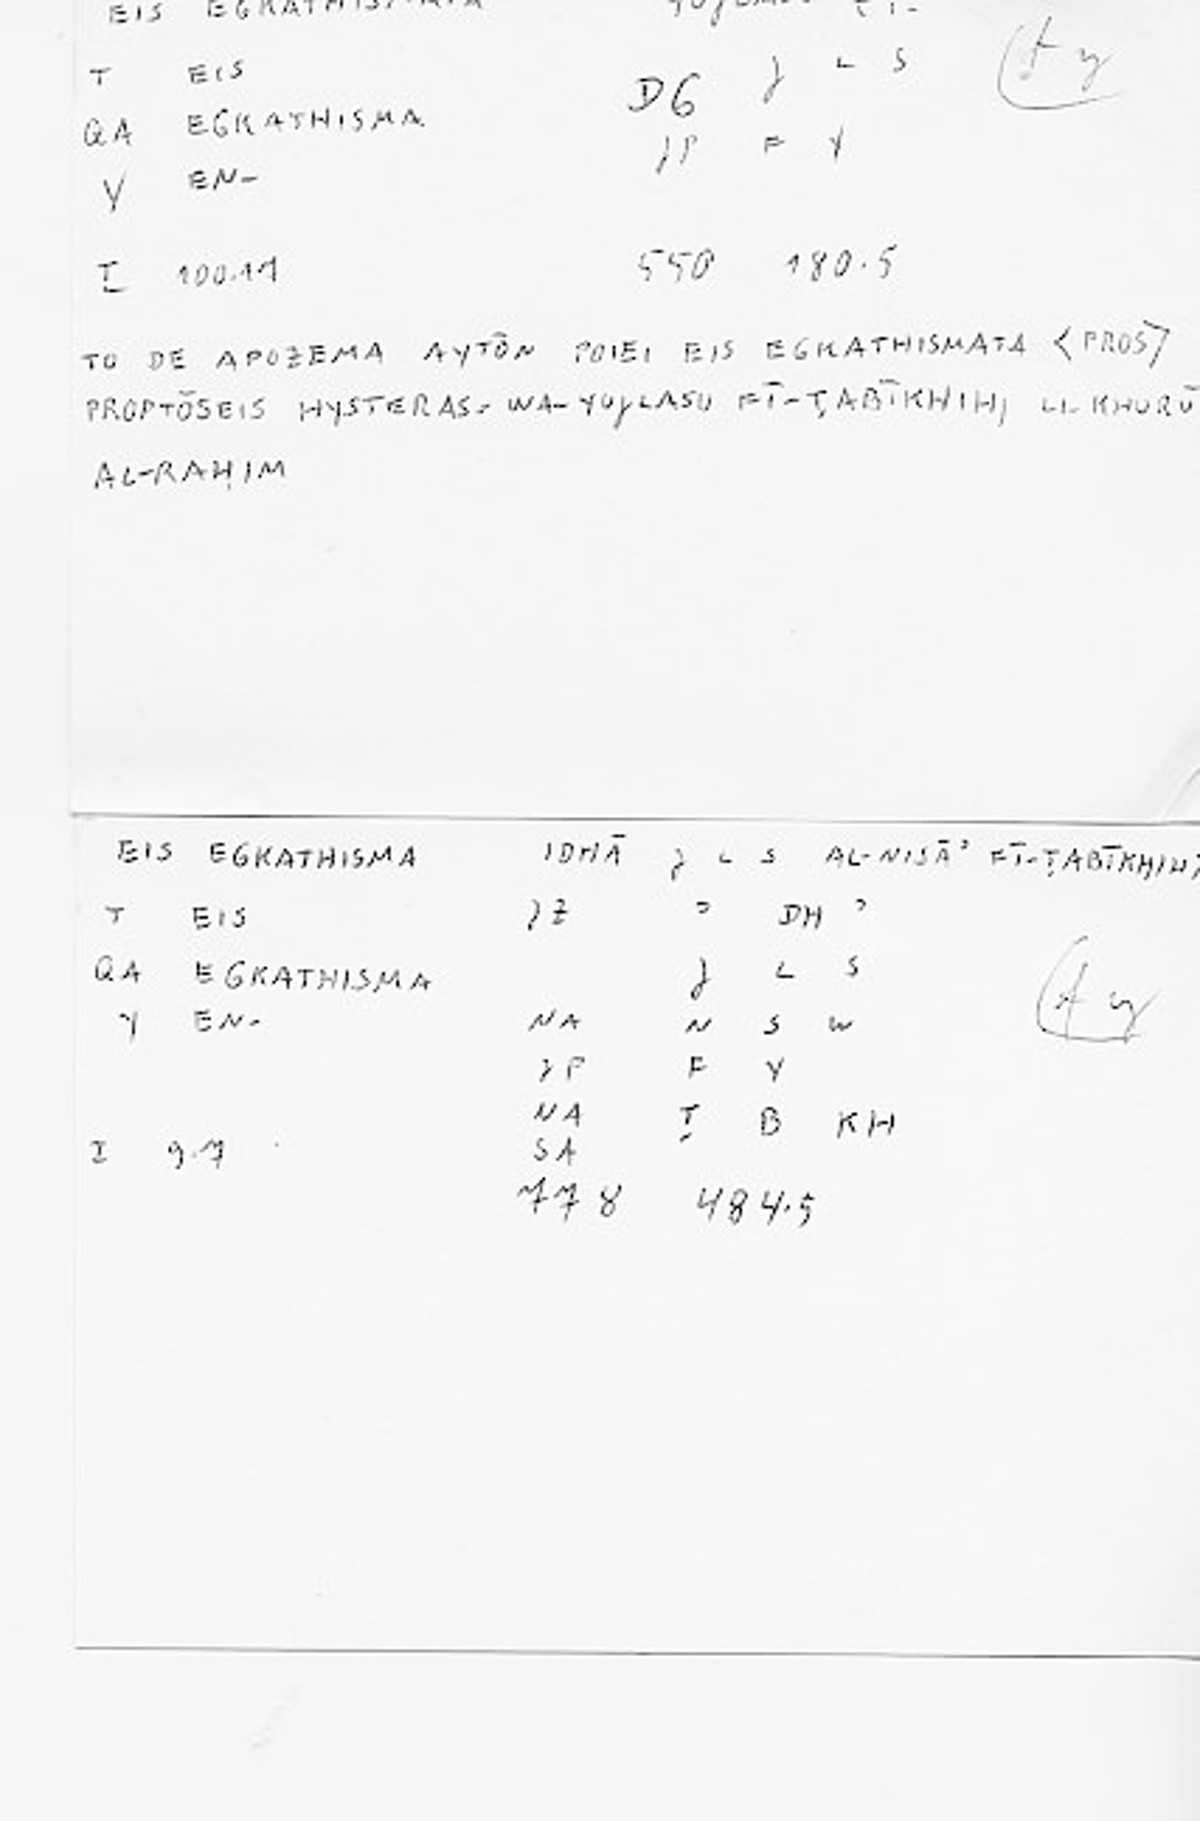 EIS EGKATHISMATA
T EIS D6 J L S
QA EGKATHISMA JP F Y
Y EN-
I 100.17 550 180.5
TO DE APOZEMA AYTŌN POIEI EIS EGKATHISMATA <PROS>
PROPTŌSEIS HYSTERAS- WA-YUJLASU FĪ-ṬABĪKHIHI LI-KHURŪ
AL-RAḤIM
EIS EGKATHISMA IDHĀ J L S AL-NISĀʾ FĪ-ṬABĪKHIHĀ
T EIS JZ ʾ DH ʾ
QA EGKATHISMA J L S
Y EN- NA N S W
JP F Y
NA Ṭ B KH
I 9.7 SA
778 484.5